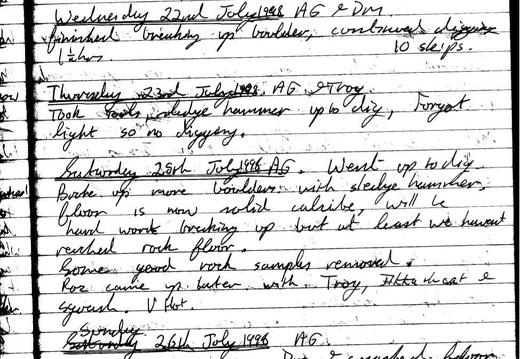 Wednesday 22nd July 1998 AG & Dm
finished breaking up boulders, continued digging
1½hrs 10 skips.
Thursday 23rd July 1998. AG & Troy.
Took tools, sledge hammer up to dig, Forgot
light so no digging.
Saturday 25th July 1998 AG. Went up to dig
Broke up more boulders with sledge hammer,
floor is now solid calcite, will be
hard work breaking up but at least we havent
reached rock floor.
Some good rock samples removed.
Roz came up later with Troy, &
squash. V Hot.
Sunday
Saturday 26th July 1998 AG.